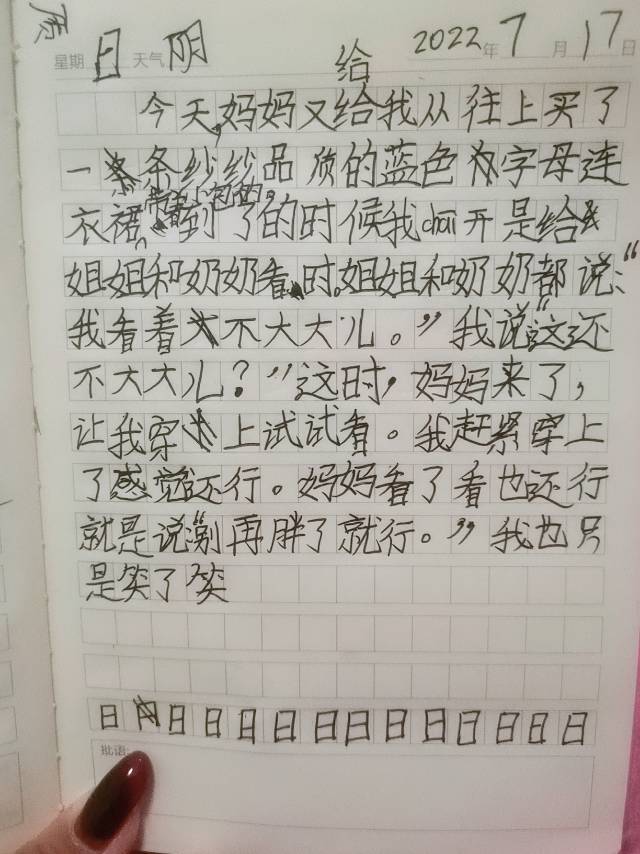 星期 日 天气 阴 给 2022年 7月 17日
今天,妈妈又给我从往上买了
一条纱纱品质的蓝色字母连
带着小的。
衣裙到了的时候我chai开是给
姐姐和奶奶看时。姐姐和奶奶都说:“
我看着不大大儿。”我说“这还
不大大儿?”这时,妈妈来了,
让我穿上试试看。我赶紧穿上
了感觉还行。妈妈看了看也还行
就是说:“别再胖了就行。”我也只
是笑了笑
日 日 日 日 日 日 日 日 日 日 日 日 日
批语: